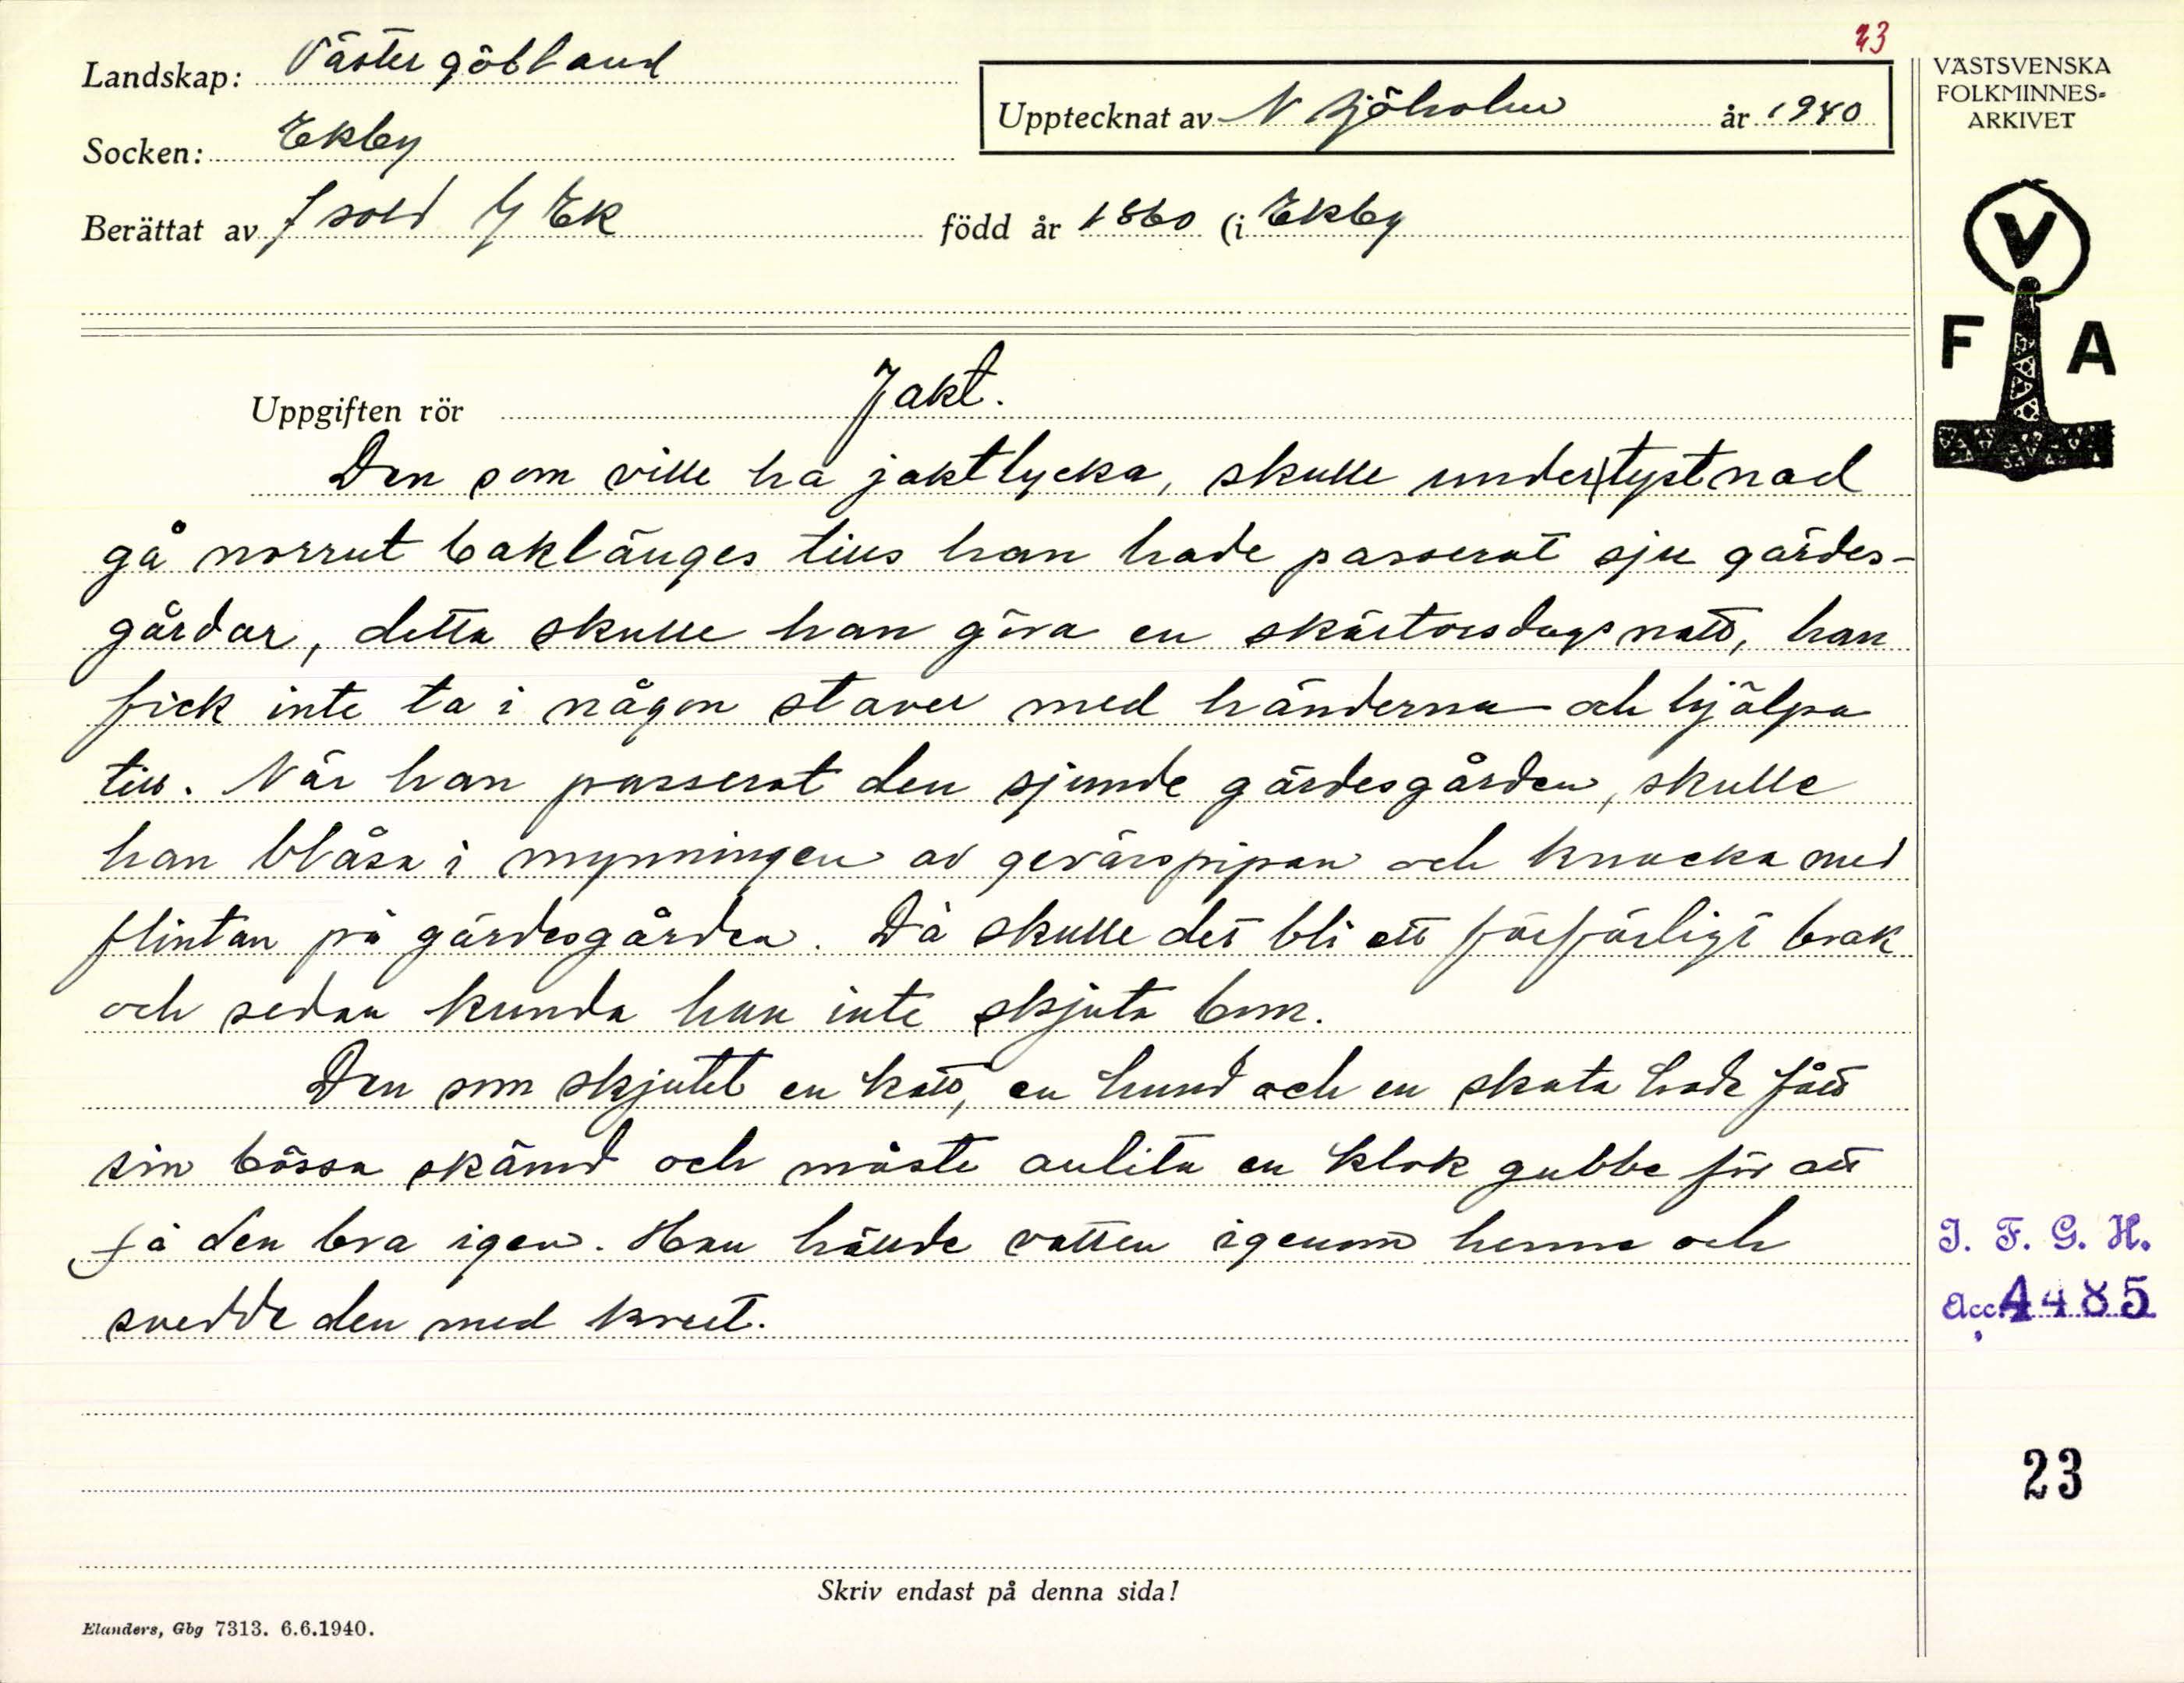 23
Landskap: Västergötland
VÄSTSVENSKA
FOLKMINNES-
ARKIVET
Upptecknat av N Sjöholm år 1940
Socken: Ekby
Berättat av f sold J Ek född år 1860 (i Ekby
V
F A
Uppgiften rör Jakt.
Den som ville ha jaktlycka, skulle under tystnad
gå norrut baklänges tills han hade passerat sju gärdes-
gårdar, detta skulle han göra en skärtorsdagsnatt, han
fick inte ta i någon staver med händerna och hjälpa
till. När han passerat den sjunde gärdesgården, skulle
han blåsa i mynningen av gevärspipan och knacka med
flintan på gärdesgården. Då skulle det bli ett förfärligt brak
och sedan kunda han inte skjuta bom.
Den som skjutit en katt, en hund och en skata hade fått
sin bössa skämd och måste anlita en klok gubbe för att
få den bra igen. Han hällde vatten igenom henne och
svedde den med krut.
I. F. G. H.
Acc. 4485
23
Skriv endast på denna sida!
Elanders, Gbg 7313. 6.6.1940.